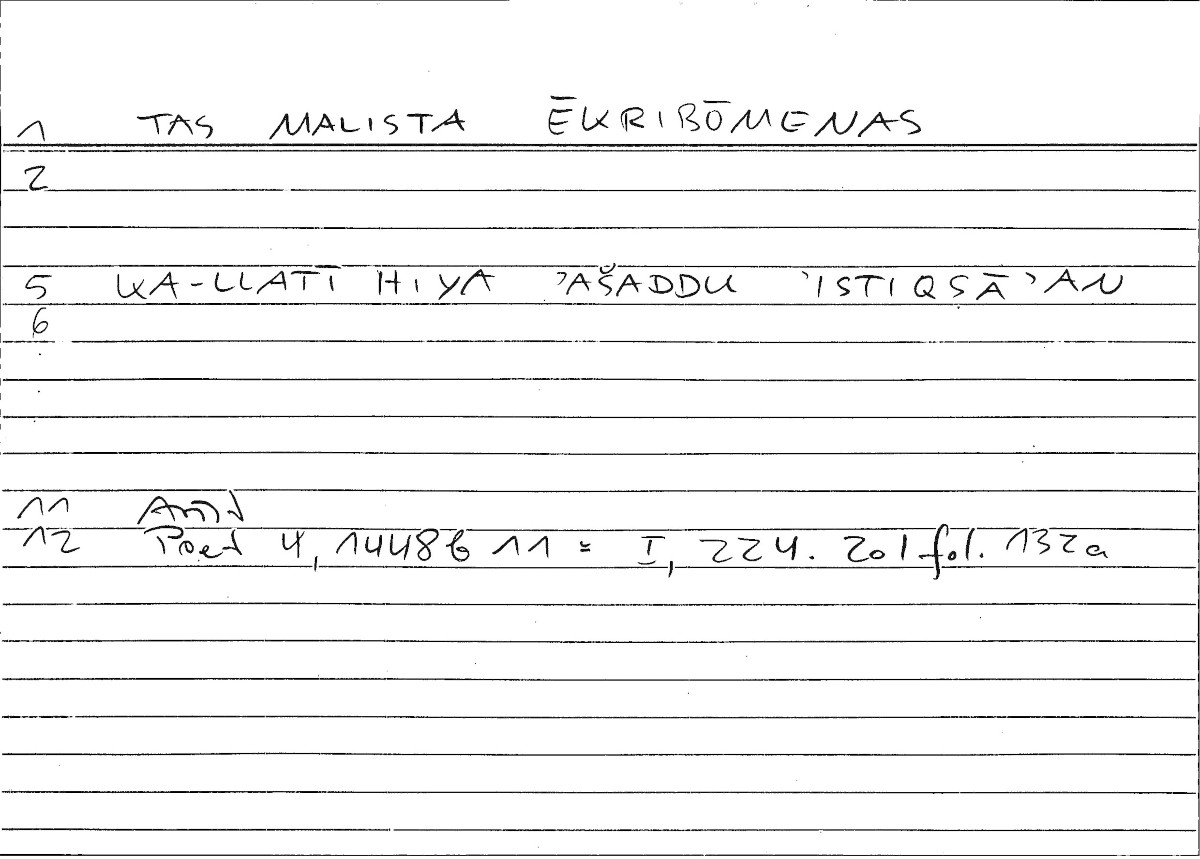 1 TAS MALISTA ĒKRIBŌMENAS
2
5 KA-LLATĪ HIYA ʾAŠADDU ʾISTIQṢĀʾAN
6
11 Arist
12 Poet 4, 1448b 11 = I, 224. 20 | fol. 132a